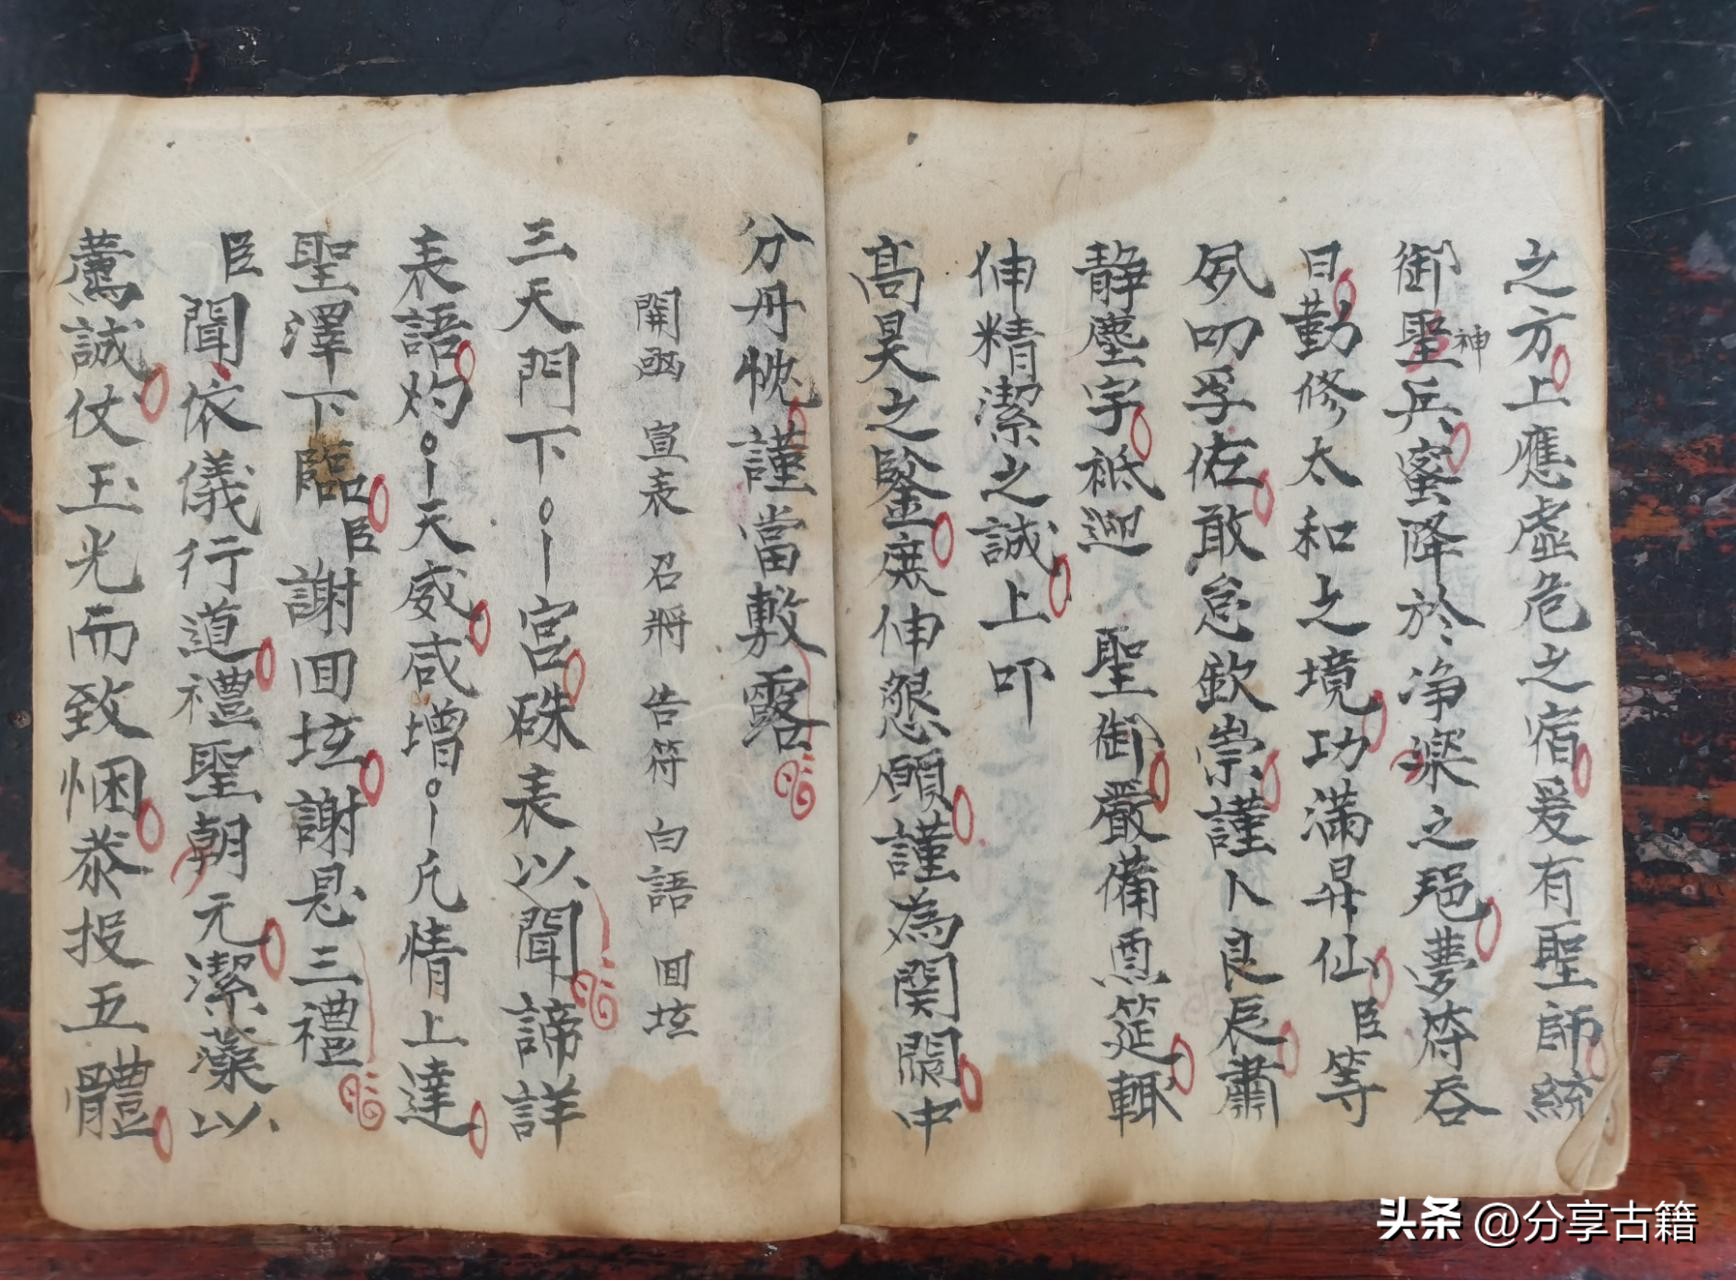 之方上應虛危之宿爰有聖師統
御聖神兵蜜降於净楽之𨛦夢符吞
日勤修太和之境功滿昇仙臣等
夙叨孚佑敢怠欽崇謹卜良辰肅
静塵宇祗迎 聖御嚴備惪筵輙
伸精潔之誠上叩
高昊之鑒庶伸懇願謹為関閱中
分丹忱謹當敷露
開函 宣表 召將 告符 白語 回坛
三天門下○丨宮硃表以聞諦詳
表語灼○丨天威咸增○丨凡情上達
聖澤下臨臣謝回坛謝恩三禮
臣聞依儀行道禮聖朝元潔藻以
薦誠仗玉光而致悃恭投五體
头条 @分享古籍